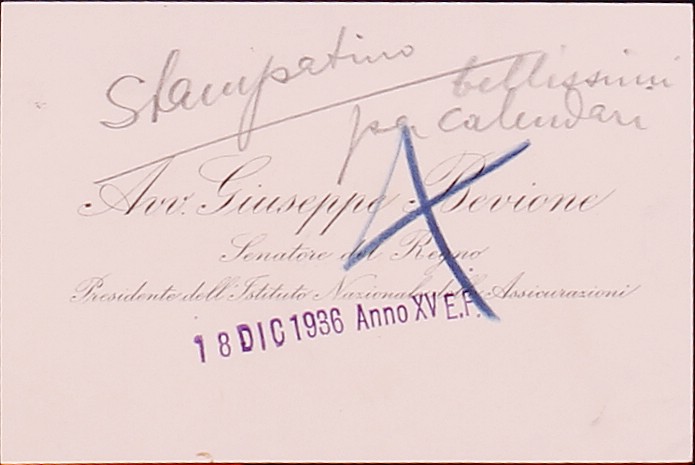 Stampatino
bellissimi
per calendari
Avv. Giuseppe Bevione
Senatore del Regno
Presidente dell'Istituto Nazionale delle Assicurazioni
18 DIC 1936 Anno XV E.F.